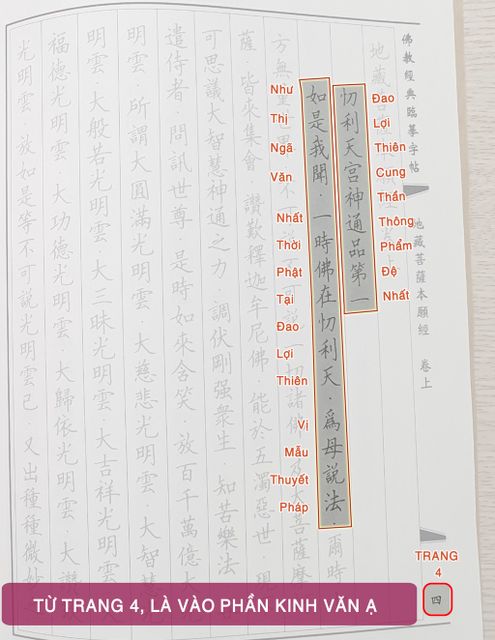 佛教經典臨摹字帖
地藏菩薩本願經 卷上
四
忉利天宮神通品第一
如是我聞.一時佛在忉利天.爲母說法.爾時
不可說一切諸佛.及大菩薩摩
薩.皆來集會 讚歎釋迦牟尼佛.能於五濁惡世.現
可思議大智慧神通之力.調伏剛强衆生.知苦樂法
遣侍者.問訊世尊 是時如來含笑.放百千萬億大
明雲.所謂大圓滿光明雲.大慈悲光明雲.大智慧
明雲.大般若光明雲.大三昧光明雲.大吉祥光明雲
福德光明雲.大功德光明雲.大歸依光明雲.大讚
光明雲 放如是等不可說光明雲已 又出種種微妙
Đao
Lợi
Thiên
Cung
Thần
Thông
Phẩm
Đệ
Nhất
Như
Thị
Ngã
Văn
Nhất
Thời
Phật
Tại
Đao
Lợi
Thiên
Vị
Mẫu
Thuyết
Pháp
TRANG
4
TỪ TRANG 4, LÀ VÀO PHẦN KINH VĂN Ạ